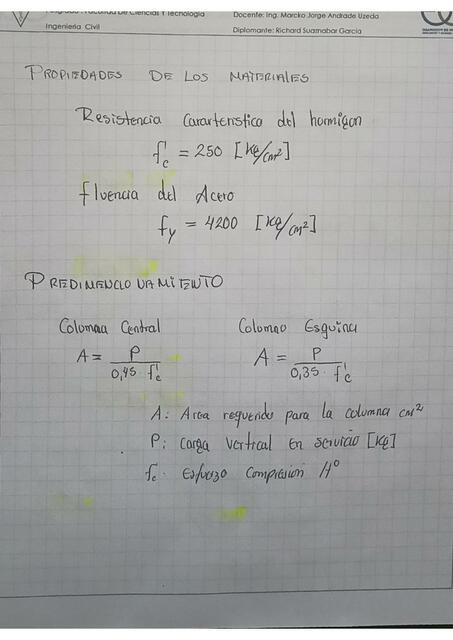 Facultad De Ciencias Y Tecnología
Docente: Ing. Marcko Jorge Andrade Uzeda
Ingeniería Civil
Diplomante: Richard Suaznabar García
PROPIEDADES DE LOS MATERIALES
Resistencia Cararteristico del hormigon
f'c = 250 [kg/cm²]
fluencia del Acero
fy = 4200 [kg/cm²]
PREDIMENCIONAMIENTO
Columna Central
Columna Esquina
A = P / 0,45 f'c
A = P / 0,35 f'c
A: Area requerido para la columna cm²
P: Carga vertical En servicio [kg]
fc. Esfuerzo Compresion H°